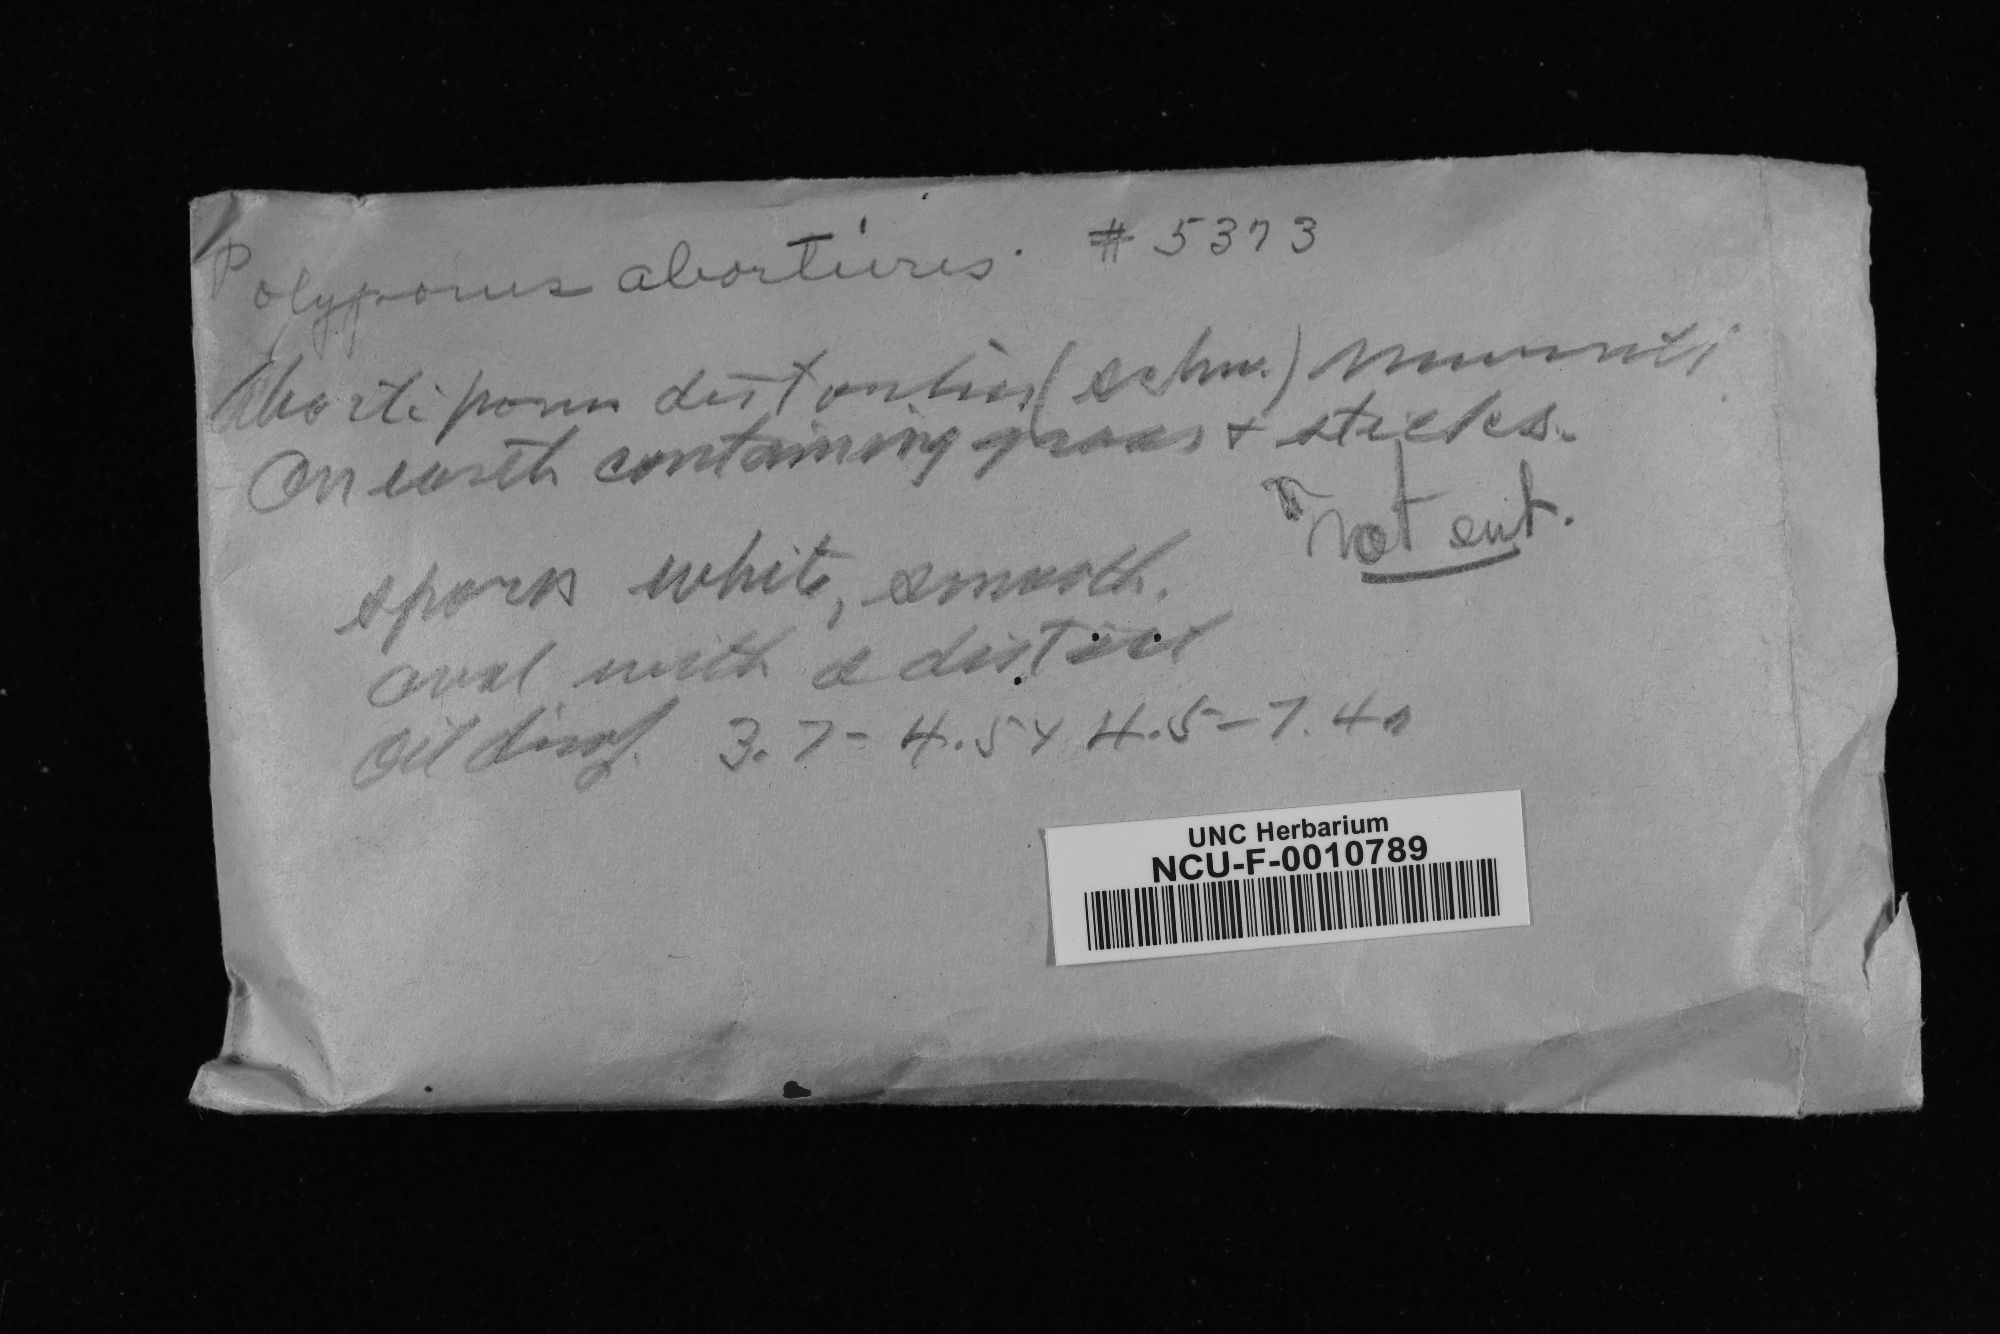 Polyporus abortivus. # 5373
Abortiporus distortus (Schw.) Murrill
On earth containing grass + sticks.
Not ent.
spores white, smooth,
oval with a distict
oil drop. 3.7-4.5 x 4.5-7.4
UNC Herbarium
NCU-F-0010789